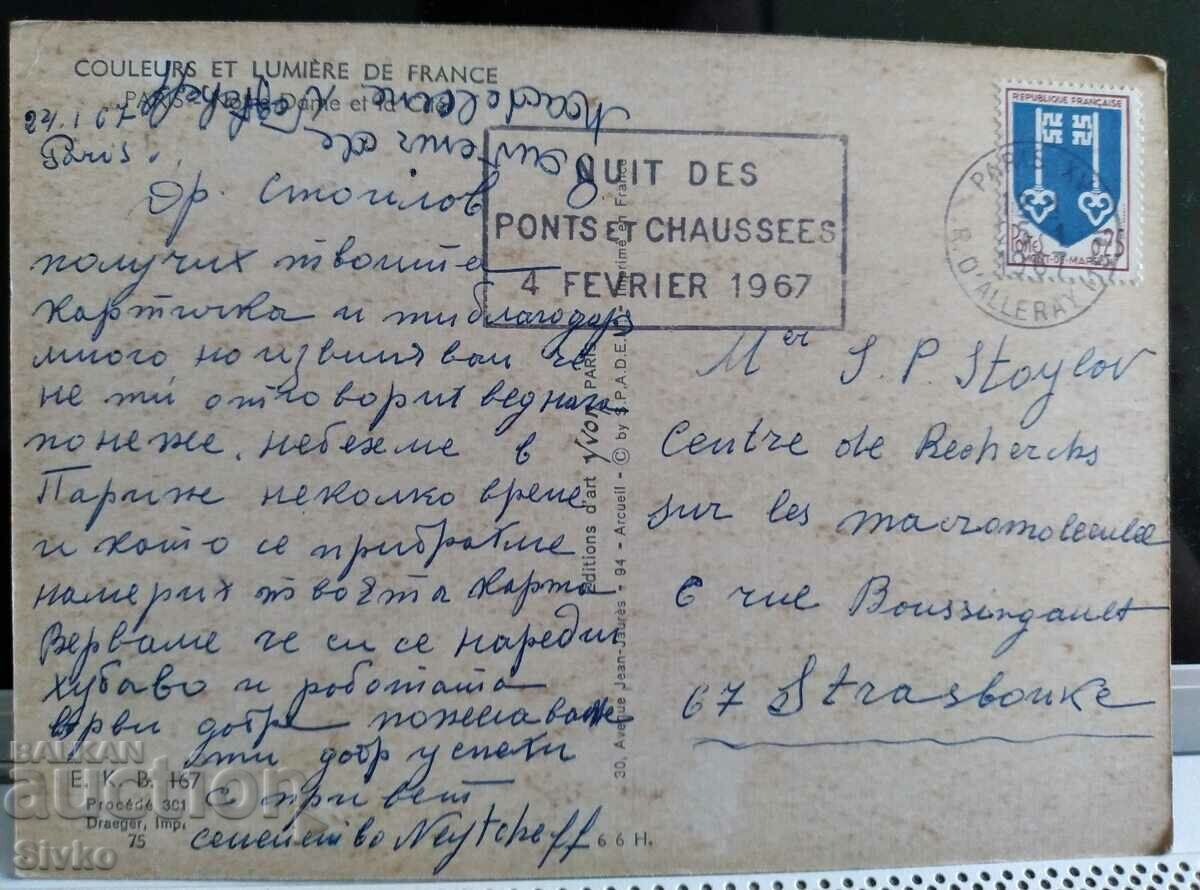 COULEURS ET LUMIÈRE DE FRANCE
PARIS - Notre-Dame et la
24.1.67
Paris.
Madeleine
Souvenir de
Др. Стоилов
получих твоита
картичка и ти благодаря
много но извинявай че
не ти отговорих веднага
понеже, небехме в
Париж неколко време
и като се прибратме
намерих твоята карта
Верваме че си се наредил
хубаво и работата
върви добре пожелаваме
ти добр успехи
с привет
семейство Neytcheff
E. K. B. 167
Procédé 301
Draeger, Imp.
75
66 H.
éditions d'art yvon PARIS
30, Avenue Jean-Jaurès - 94 - Arcueil - © by S.P.A.D.E. Imprimé en France
NUIT DES
PONTS ET CHAUSSEES
4 FEVRIER 1967
REPUBLIQUE FRANÇAISE
Postes 0,25
MONT-DE-MARSAN
PARIS XV
R. D'ALLERAY
Mer S. P. Stoylov
Centre de Recherchs
sur les macromolecule
6 rue Boussingault
67 Strasbourke
BALKAN
auction
Sivko